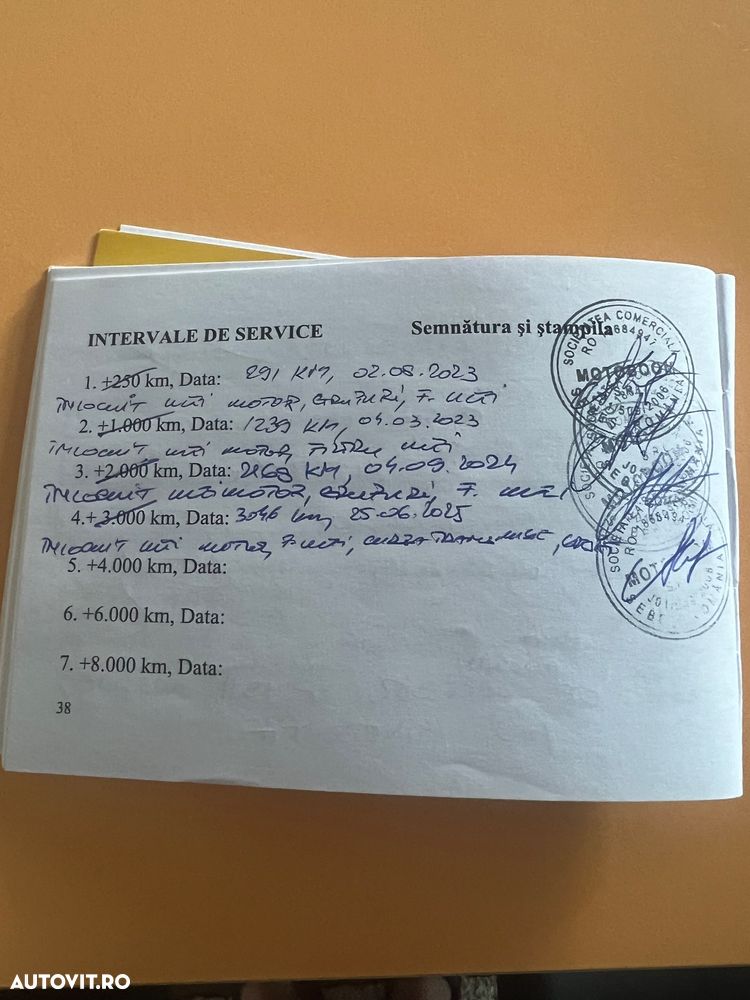 INTERVALE DE SERVICE Semnătura și ștampila
1. +250 km, Data: 291 KM, 02.08.2023
ÎNLOCUIT ULEI MOTOR, F. ULEI
2. +1.000 km, Data: 1239 KM, 04.03.2023
ÎNLOCUIT ULEI MOTOR, FILTRU ULEI
3. +2.000 km, Data: 2168 KM, 04.09.2024
ÎNLOCUIT ULEI MOTOR, F. ULEI
4.+ 3.000 km, Data: 3046 km, 25.06.2025
ÎNLOCUIT ULEI MOTOR, F. ULEI, CUREA TRANSMISIE,
5. +4.000 km, Data:
6. +6.000 km, Data:
7. +8.000 km, Data:
38
SOCIETATEA COMERCIALĂ
MOTOBOOM
AUTOVIT.RO